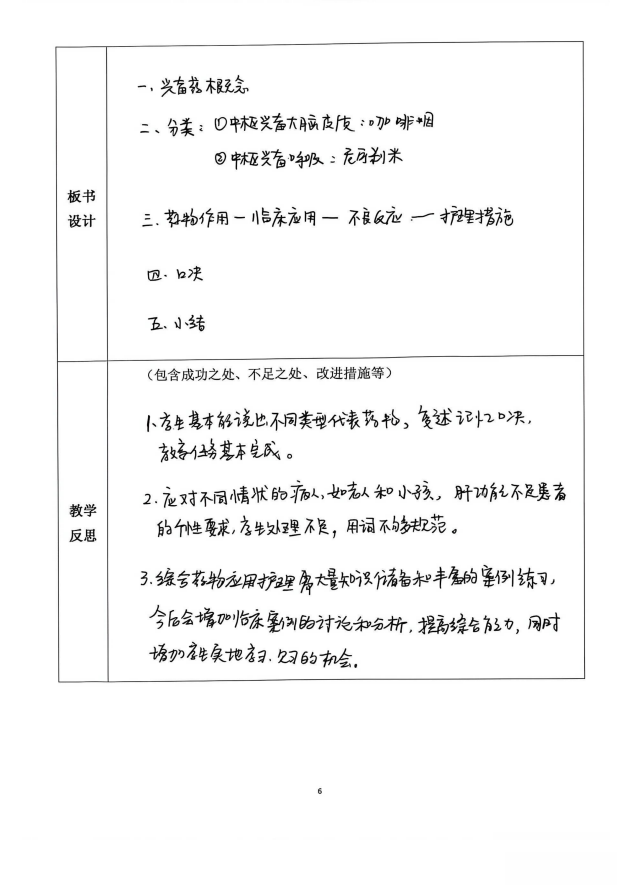 板书
设计
一、兴奋药概念
二、分类：①中枢兴奋大脑皮皮：咖啡烟
②中枢兴奋呼吸：尼可刹米
三、药物作用—临床应用—不良反应—护理措施
四、口决
五、小结
教学
反思
（包含成功之处、不足之处、改进措施等）
1、学生基本能说出不同类型代表药物，复述记忆口决，
教学任务基本完成。
2.应对不同情状的病人,如老人和小孩，肝功能不足患者
的个性要求,学生处理不足，用词不够规范。
3.综合药物应用护理需大量知识储备和丰富的案例练习,
今后会增加临床案例的讨论和分析,提高综合能力,同时
增加学生实地学习、见习的机会。
6